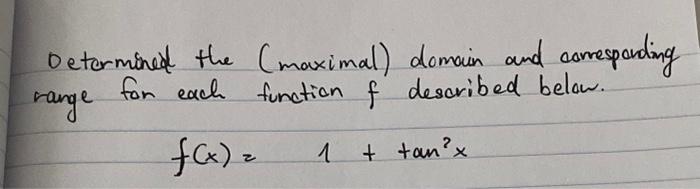 Determined the (maximal) domain and corresponding
range for each function f described below.
f(x) = 1 + tan²x